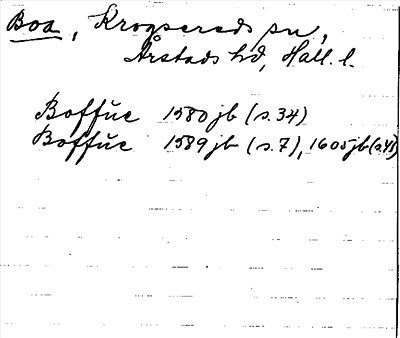 Boa, Krogsereds sn,
Årstads hd, Hall. l.
Boffŭe 1580 jb (s. 34)
Boffŭe 1589 jb (s. 7), 1605 jb (s. 48)